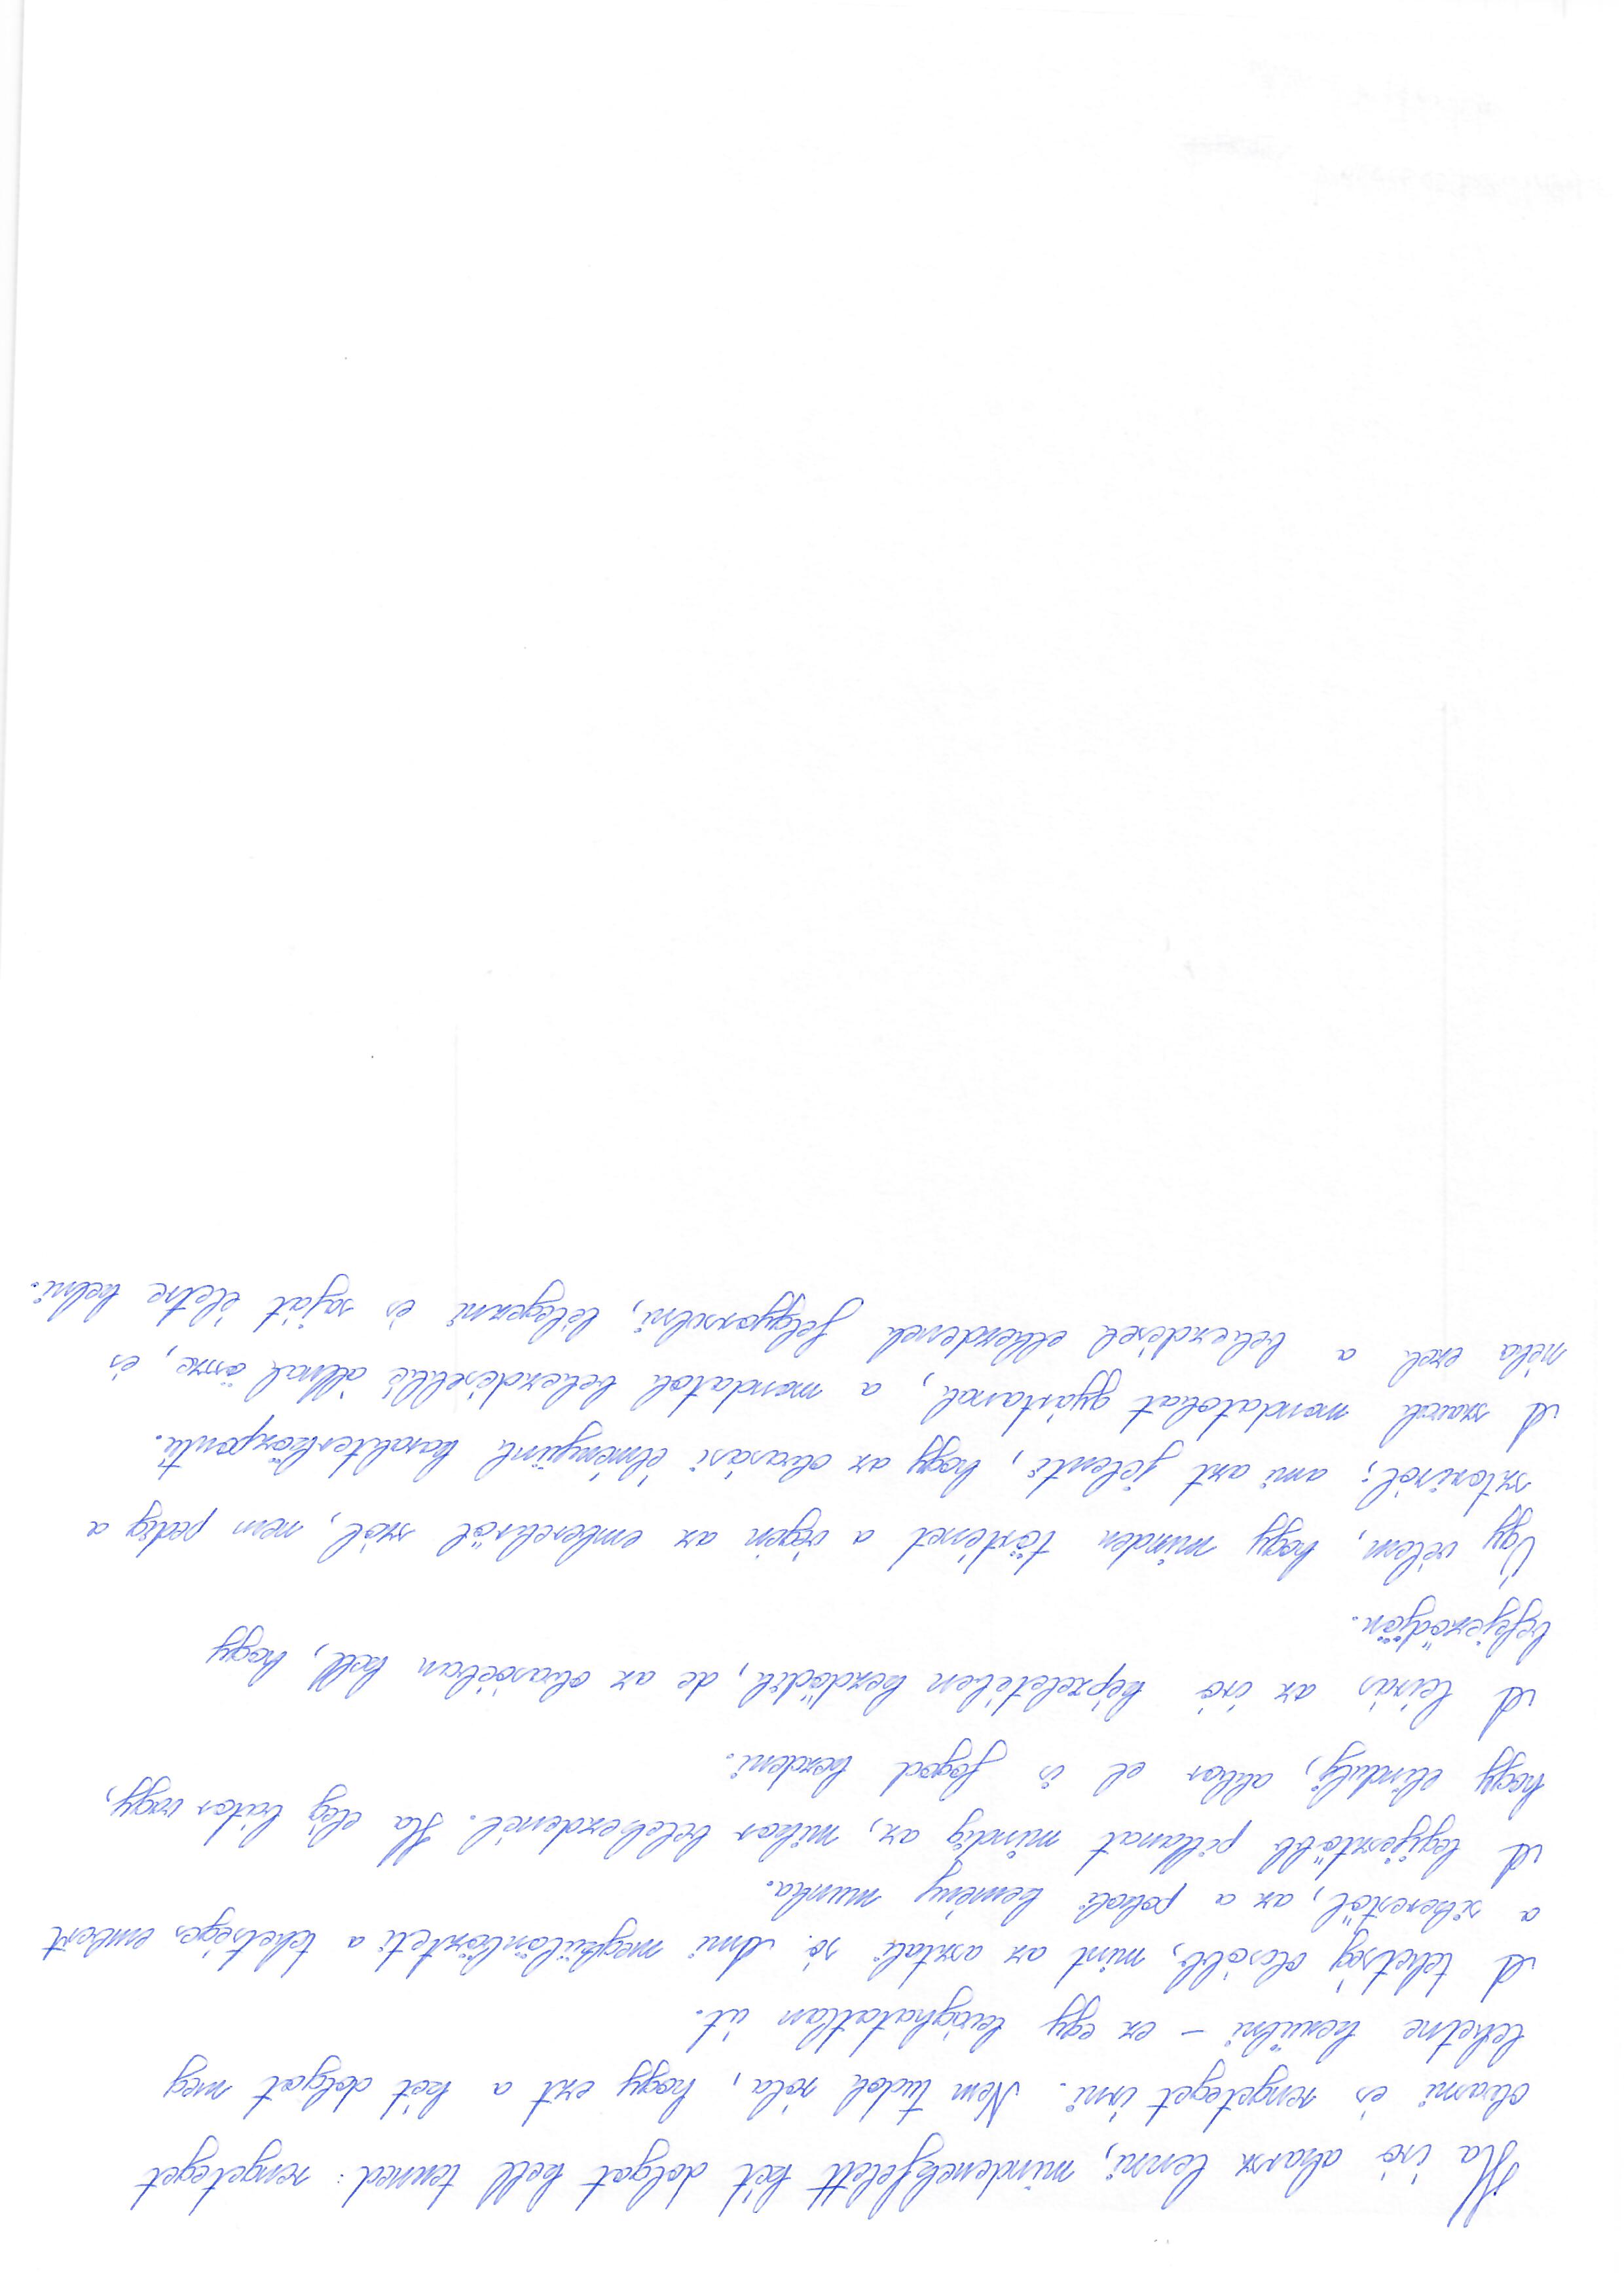 Ha író akarsz lenni, mindenekfelett két dolgot kell tenned: rengeteget
olvasni és rengeteget írni. Nem tudok róla, hogy ezt a két dolgot meg
lehetne kerülni – ez egy levághatatlan út.
A tehetség olcsóbb, mint az asztali só. Ami megkülönbözteti a tehetséges embert
a sikerestől, az a pokoli kemény munka.
A legijesztőbb pillanat mindig az, mikor belekezdenél. Ha elég bátor vagy,
hogy elindulj, akkor el is fogod kezdeni.
A leírás az író képzeletében kezdődik, de az olvasóéban kell, hogy
befejeződjön.
Úgy vélem, hogy minden történet a végén az emberekről szól, nem pedig a
sztoriról; ami azt jelenti, hogy az olvasási élményünk karakterközpontú.
A szavak mondatokat gyártanak, a mondatok bekezdésekké állnak össze, és
néha ezek a bekezdések elkezdenek felgyorsulni, lélegezni és saját életre kelni.